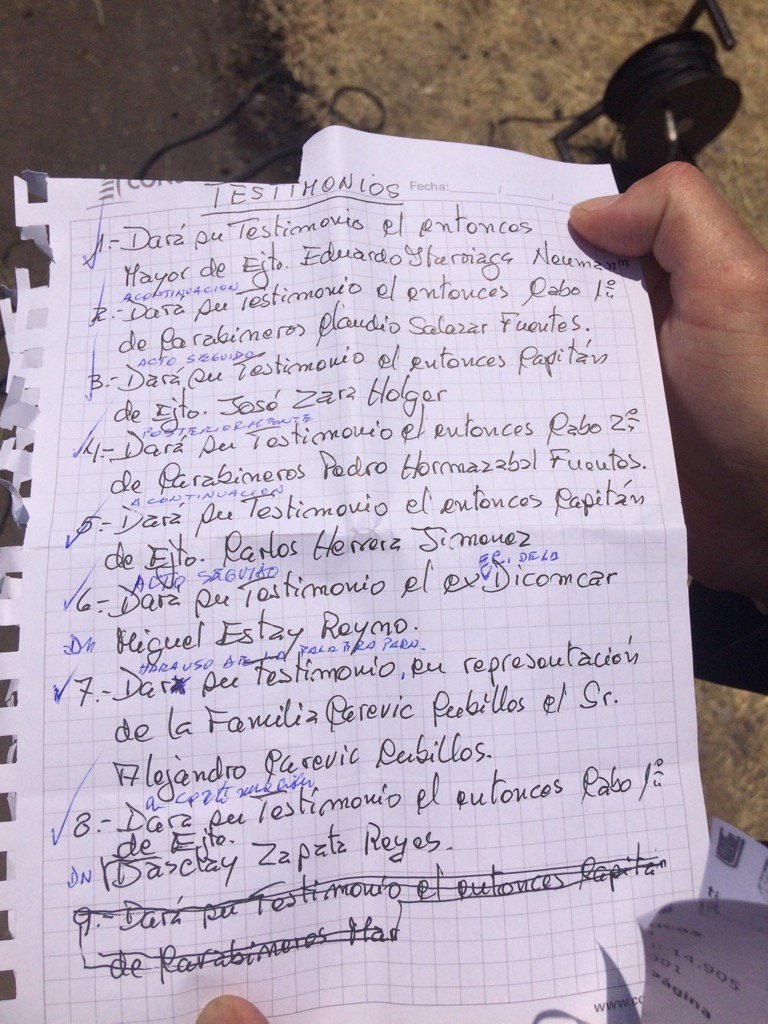 TESTIMONIOS Fecha: / /
1.- Dará su Testimonio el entonces
Mayor de Ejto. Eduardo Iturriaga Neumann
A CONTINUACION
2.- Dará su Testimonio el entonces Cabo 1º
de Carabineros Claudio Salazar Fuentes.
ACTO SEGUIDO
3.- Dará su Testimonio el entonces Capitán
de Ejto. José Zara Holger
POSTERIORMENTE
4.- Dará su Testimonio el entonces Cabo 2º
de Carabineros Pedro Hormazabal Fuentes.
A CONTINUACION
5.- Dará su Testimonio el entonces Capitán
de Ejto. Carlos Herrera Jimenez
ACTO SEGUIDO DE LA
6.- Dará su Testimonio el ex Dicomcar
DN Miguel Estay Reyno.
HARA USO DE LA PALABRA PARA
7.- Dar su Testimonio, en representación
de la Familia Carevic Cubillos el Sr.
Alejandro Carevic Cubillos.
a continuación
8.- Dará su Testimonio el entonces Cabo 1º
de Ejto.
DN Darclay Zapata Reyes.
9.- Dará su Testimonio el entonces Capitán
de Carabineros Har
www.co
14.905
001
página